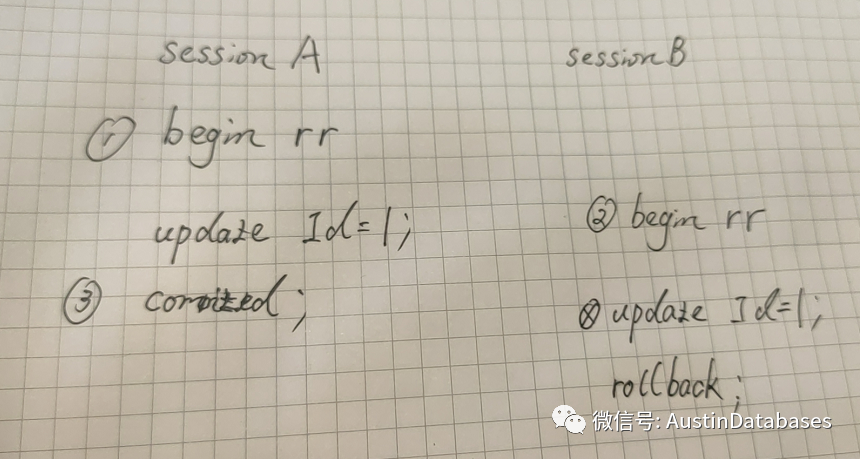 session A
session B
① begin rr
update Id=1;
② begin rr
③ comitted;
⊗ update Id=1;
rollback;
微信号: AustinDatabases